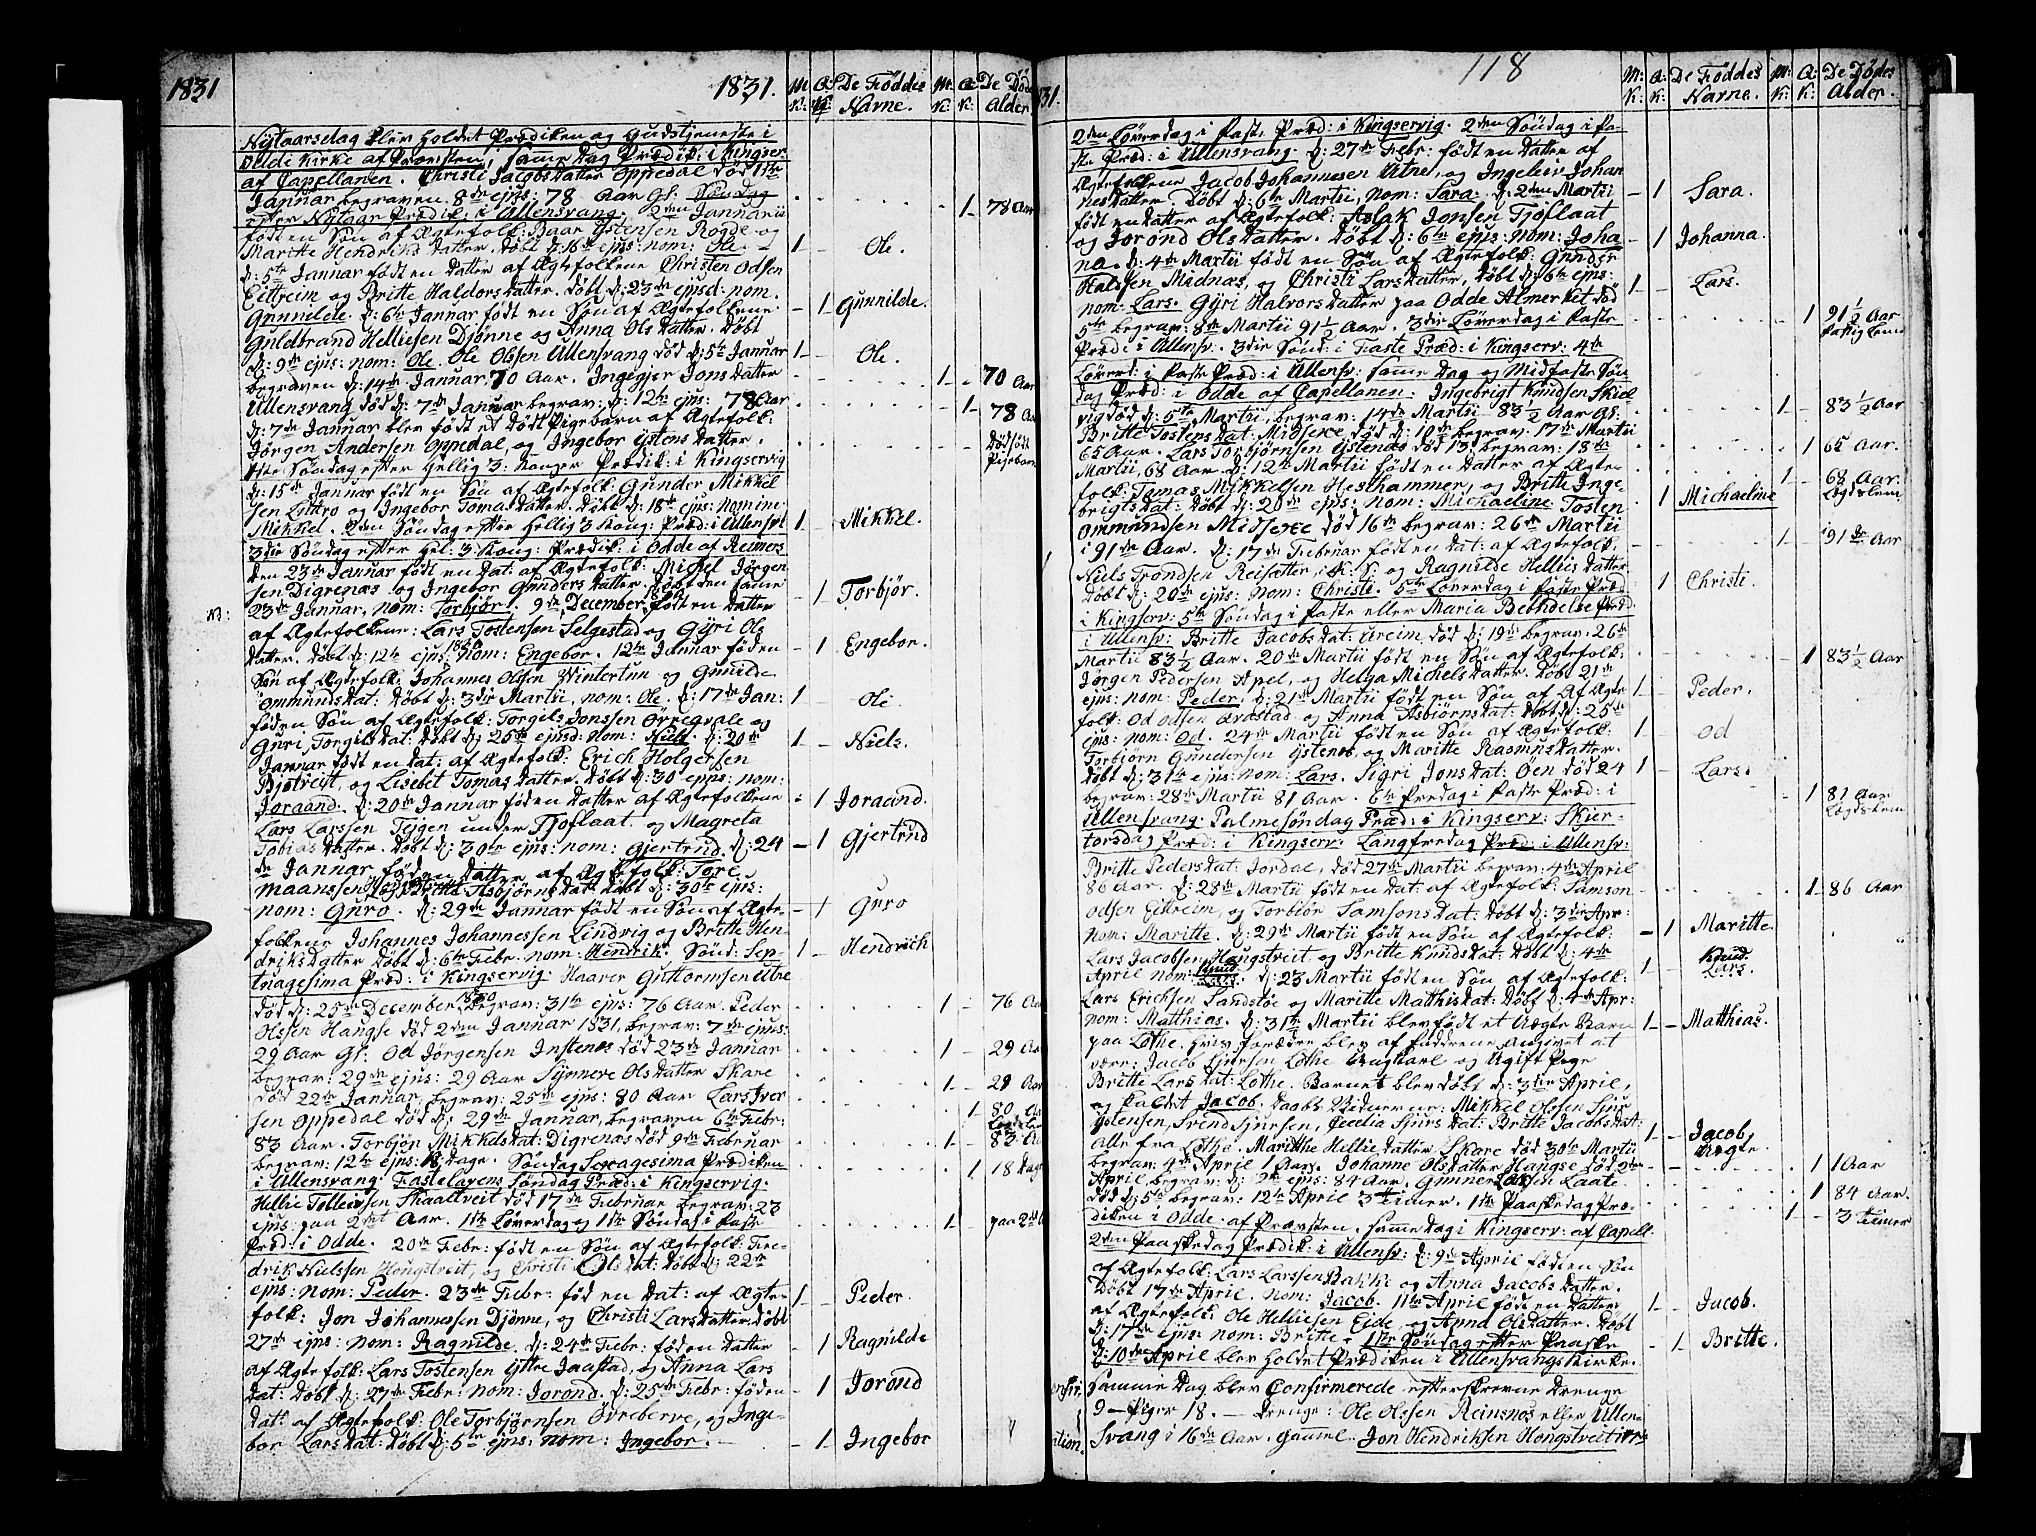 1831
1831.
M: K:
Q: K:
De Föddes Navne.
M: K:
Q: K:
De Död Alder
Nytaarsdag blev holdet Prædiken og Gudstjeneste i
Odde Kirke af Provsten, samme Dag Prædik: i Kingser-
af Capellanen. Christi Jacobsdatter Oppedal död 1ste
Januar begraven 8de ejus: 78 Aar Gl: Söndag
efter Nytaar Prædik: i Ullensvang. 2den Januarii
född en Sön af Ægtefolk: Baar Ystensen Rogde og
Maritte Hendriks Datter. Döbt d: 16de ejus: nom: Ole.
d: 5te Januar född en Datter af Ægtefolkene Christen Odsen
Eittreim og Britte Haldorsdatter. Döbt d: 23de ejusd: nom.
Gunnilde. d: 6te Januar född en Sön af Ægtefolkene
Guldbrand Helliesen Djönne og Anna Olsdatter. Döbt
d: 9de ejus: nom: Ole. Ole Olsen Ullensvang död d: 5te Januar
begraven d: 14de Januar, 70 Aar. Ingegjer Jonsdatter
Ullensvang död d: 7de Januar begrav: d: 12te ejus: 78 Aar
d: 7de Januar blev födt et Dödt Pigebarn af Ægtefolk:
Jörgen Andersen Oppedal, og Ingebor Ystens datter.
1ste Söndag efter Hellig 3: Konger Prædik: i Kingservig
d: 15de Januar född en Sön af Ægtefolk: Gunder Mikkel
sen Luttro og Ingebor Tomasdatter. Döbt d: 18de ejus: Nomine
Mikkel. 2den Söndag efter Hellig 3 Kong: Præd: i Ullensv:
3die Söndag efter Hel: 3 Kong: Prædik: i Odde af Reimers
den 23de Januar född en Dat: af Ægtefolk: Michel Jörgen
sen Digrenæs og Ingebor Gunders datter. Döbt den samme
23de Januar, nom: Torbjör. 9de December, född en Datter
af Ægtefolkene: Lars Tostensen Selgestad og Gÿri Ols
datter. Döbt d: 12te ejus: Nom: Engebor. 12te Januar föden
Sön af Ægtefolk: Johannes Olsen Wintertun og Gunilde
Ommundsdat: Döbt d: 3die Martii, nom: Ole. d: 17de Jan:
föden Sön af Ægtefolk: Torgels Jonssen Örregvale og
Guri Torgilsdat: Döbt d: 25de ejusd: Nom: Niels. d: 20de
Januar född en Dat: af Ægtefolk: Erich Holgersen
Bÿstveit, og Lisebet Tomas datter. Döbt d: 30 ejus: nom:
Joraand. d: 20de Januar föden Datter af Ægtefolkene
Lars Larssen Teigen under Tjoflaat. og Magreta
Tobias datter. Döbt d: 30te ejus: nom: Gjertrud. d: 24
de Januar föden Datter af Ægtefolk: Tore
nom: Guro. d: 29de Januar född en Sön af Ægte-
folkene Johannes Johannessen Lindvig og Britte Hen-
driksdatter Döbt d: 6te Febr. nom: Hendrik. Sönd: Sep-
tuagesima Præd: i Kingservig: Haaver Guttormsen Utne
död d: 25de December 1830 begrav: 31te ejus: 76 Aar. Peder
Olssen Hangse död 2den Januar 1831, begrav: 7de ejus:
29 Aar Gl: Od Jörgensen Instenes död 23de Januar
begrav: 29de ejus: 29 Aar Synneve Olsdatter Skare
död 22de Januar, begrav: 25de ejus: 80 Aar Lars Iver
sen Oppedal död d: 29de Januar, begraven 6te Febr:
83 Aar. Torbjör Mikkelsdat: Digrenæs död 9de Februar
begrav: 12te ejus: 18 dage. Söndag Sexagesima Prædiken
i Ullensvang. Fastelavens Söndag Præd: i Kingservig.
Hellie Tolleivsen Skaaltveit död 17de Februar begrav: 23
ejus paa 2det Aar. 1ste Löverdag og 1ste Söndag i Faste
Præd: i Odde. 20de Febr: född en Sön af Ægtefolk: Fre-
drik Nielssen Hongstveit, og Christi Olsdat: Döbt d: 22de
ejus: nom: Peder. 23de Febr: föd en Dat: af Ægte-
folk: Jon Johannessen Djönne, og Christi Larsdatter. Döbt
27de ejus: nom: Ragnilde. d: 24de Febr: föden Datter
af Ægtefolk: Lars Tostensen Ÿttre Jaastad, og Anna Lars
dat: Döbt d: 27de Febr: nom: Jorond. d: 25de Febr: föden
Dat: af Ægtefolk: Ole Torbjörnsen Övreberve, og Inge-
bor Larsdat: Döbt d: 5te ejus: nom: Ingebor.
1 - 78 Aar
1 Ole.
1 Gunnilde.
1 Ole.
1 - 70 Aar
1 - 78 Aar
Dödfödt Pigebarn
1 Mikkel.
NB:
1 Torbjör.
1 Engebor.
1 Ole
1 Niels.
1 Joraand.
1 Gjertrud
1 Guro
1 Hendrich
1 76 Aar
1 29 Aar
1 - 29 Aar
1 80 Aar
1 83 Aa
1 18 Dage
1 paa 2det
1 Peder.
1 Ragnilde
1 Jorond
1 Ingebor
31.
118
M: K:
Q: K:
De Föddes Navne.
M: K:
Q: K:
De Dödes Alder.
2den Löverdag i Fast: Præd: i Kingservig. 2den Söndag i Fa-
ste Præd: i Ullensvang. d: 27de Febr: födt en Datter af
Ægtefolkene Jacob Johannesen Utne, og Ingeleiv Johan
nesdatter. Döbt d: 6te Martii, nom: Sara. d: 2den Martii
född en datter af Ægtefolk: Aslak Jonsen Tjoflaat
og Jorond Olsdatter. Döbt d: 6te ejus: nom: Joha
na. d: 4de Martii född en Sön af Ægtefolk: Gunder
Haldsen Midnæs, og Christi Larsdatter, Döbt d: 6te ejus:
nom: Lars. Gÿri Halvorsdatter paa Odde Almerket död
5te begrav: 8de Martii 91 1/2 Aar. 3die Löverdag i Faste
Præd: i Ullensv: 3die Sönd: i Faste Præd: i Kingserv: 4de
Löverd: i Faste Præd: i Ullensv: samme dag og Midfaste Sön
dag Præd: i Odde af Capellanen. Ingebrigt Knudsen Skiel
vig död d: 5te Martii, begrav: 14de Martii 83 1/2 Aar Gl:
Britte Tostensdat: Midsexe död d: 10de begrav: 17de Martii
65 Aar. Lars Torbjörnsen Ystenæs död 13, begrav: 18de
Martii, 68 Aar. d: 12te Martii född en Datter af Ægte-
folk: Tomas Mikkelsen Hesthammer, og Britte Inge-
brigtsdat: Döbt d: 20de ejus: nom: Michaeline. Tosten
Ommundsen Midsexe död 16de begrav: 26de Martii
i 91de Aar. d: 17de Februar född en Dat: af Ægtefolk.
Niels Trondsen Reisæter, i K: S: og Ragnilde Hellies datter
Döbt d: 20de ejus: nom: Christi. 5te Löverdag i Faste Præd:
i Kingserv: 5te Söndag i Faste eller Maria Bebudelse Præd.
i Ullensv: Britte Jacobsdat: Ureim död d: 19de begrav: 26de
Martii 83 1/2 Aar. 20de Martii född en Sön af Ægtefolk:
Jörgen Pedersen Apel, og Helga Michels datter. Döbt 21de
ejus: nom: Peder. d: 21de Martii född en Sön af Ægte
folk: Od Odsen Ærdstad og Anna Asbjörnsdat: Döbt d: 25de
ejus: nom: Od. 24de Martii född en Sön af Ægtefolk:
Torbjörn Gundersen Ystenes, og Maritte Rasmusdatter.
Döbt d: 31te ejus: nom: Lars. Sigri Jonsdat: Öen död 24
begrav: 28de Martii 81 Aar. 6te Fredag i Faste Præd: i
Ullensvang. Palmesöndag Præd: i Kingserv: Skjer-
torsdag Præd: i Kingserv: Langfredag Præd: i Ullensv:
Britte Pedersdat: Jordal, död 27de Martii begrav: 4de April
86 Aar. d: 28de Martii född en Dat: af Ægtefolk: Samson
Odsen Eittreim, og Torbjör Samsonsdat: Döbt d: 3die Apr:
nom: Maritte. d: 29de Martii född en Sön af Ægtefolk:
Lars Jacobsen Hongstveit og Britte Knudsdat: Döbt d: 4de
April nom: Knud. d: 23 Martii född en Sön af Ægtefolk:
Lars Erichsen Sandstöe og Maritte Matthisdat: Döbt d: 4de Apr:
nom: Matthias. d: 31te Martii blev födt et Uægte Barn
paa Lothe. hvis forædre blev af fadderne angivet at
være: Jacob Sjursen Lothe Ungkarl og Ugift Pige
Britte Larsdat: Lothe. Barnet blev Döbt d: 3die April,
og kaldet Jacob. Daabs Vidner er: Mikkel Olssen Sjur
Ystensen, Svend Sjursen, Cecelia Sjursdat: Britte Jacobsdat:
Alle fra Lothe. Maritthe Hellie datter Skare död 30te Martii
begrav: 4de April 1 Aar. Johanne Olsdatter Hangse död 2den
April begrav: d: 9de ejus: 84 Aar. Gunner Larsen Laate
död d: 5te begrav: 12te April 3 Timer. 1ste Paaskedag Præ-
diken i Odde af Provsten, samme dag i Kingserv: af Capell:
2den Paaskedag Prædik: i Ullensv: d: 9de April född en Sön
af Ægtefolk: Lars Larssen Bakke og Anna Jacobs datter.
Döbt 17de April. nom: Jacob. 11te April född en Datter
af Ægtefolk: Ole Helliesen Eide, og Apnd Olsdatter. Döbt
d: 17de ejus: nom: Britte. 1ste Söndag efter Paaske
d: 10de April blev holdet Prædiken i Ullensvangs Kirke.
Samme Dag blev Confirmerede efterskrevne Drenge
9 - Piger 18. - Drenge: Ole Olssen Reinsnos eller Ullen-
svang i 16de Aar. Gammel. Jon Hendriksen Hongstveit
1 Sara.
1 Johanna.
1 Lars.
1 91 1/2 Aar
Fattig Lem
1 - 83 1/2 Aar
1 65 Aar.
1 - 68 Aar.
Legdslem
1 Michaeline
1 - 91de Aar
1 Christi
1 83 1/2 Aar
1 Peder.
1 Od
1 Lars.
1 81 Aar
Legdslem
1 86 Aar
1 Maritte.
1 Knud.
Lars.
1 Matthias.
1 Jacob,
Uægte.
1 1 Aar
1 84 Aar.
1 - 3 Timer
1 Jacob.
1 Britte.